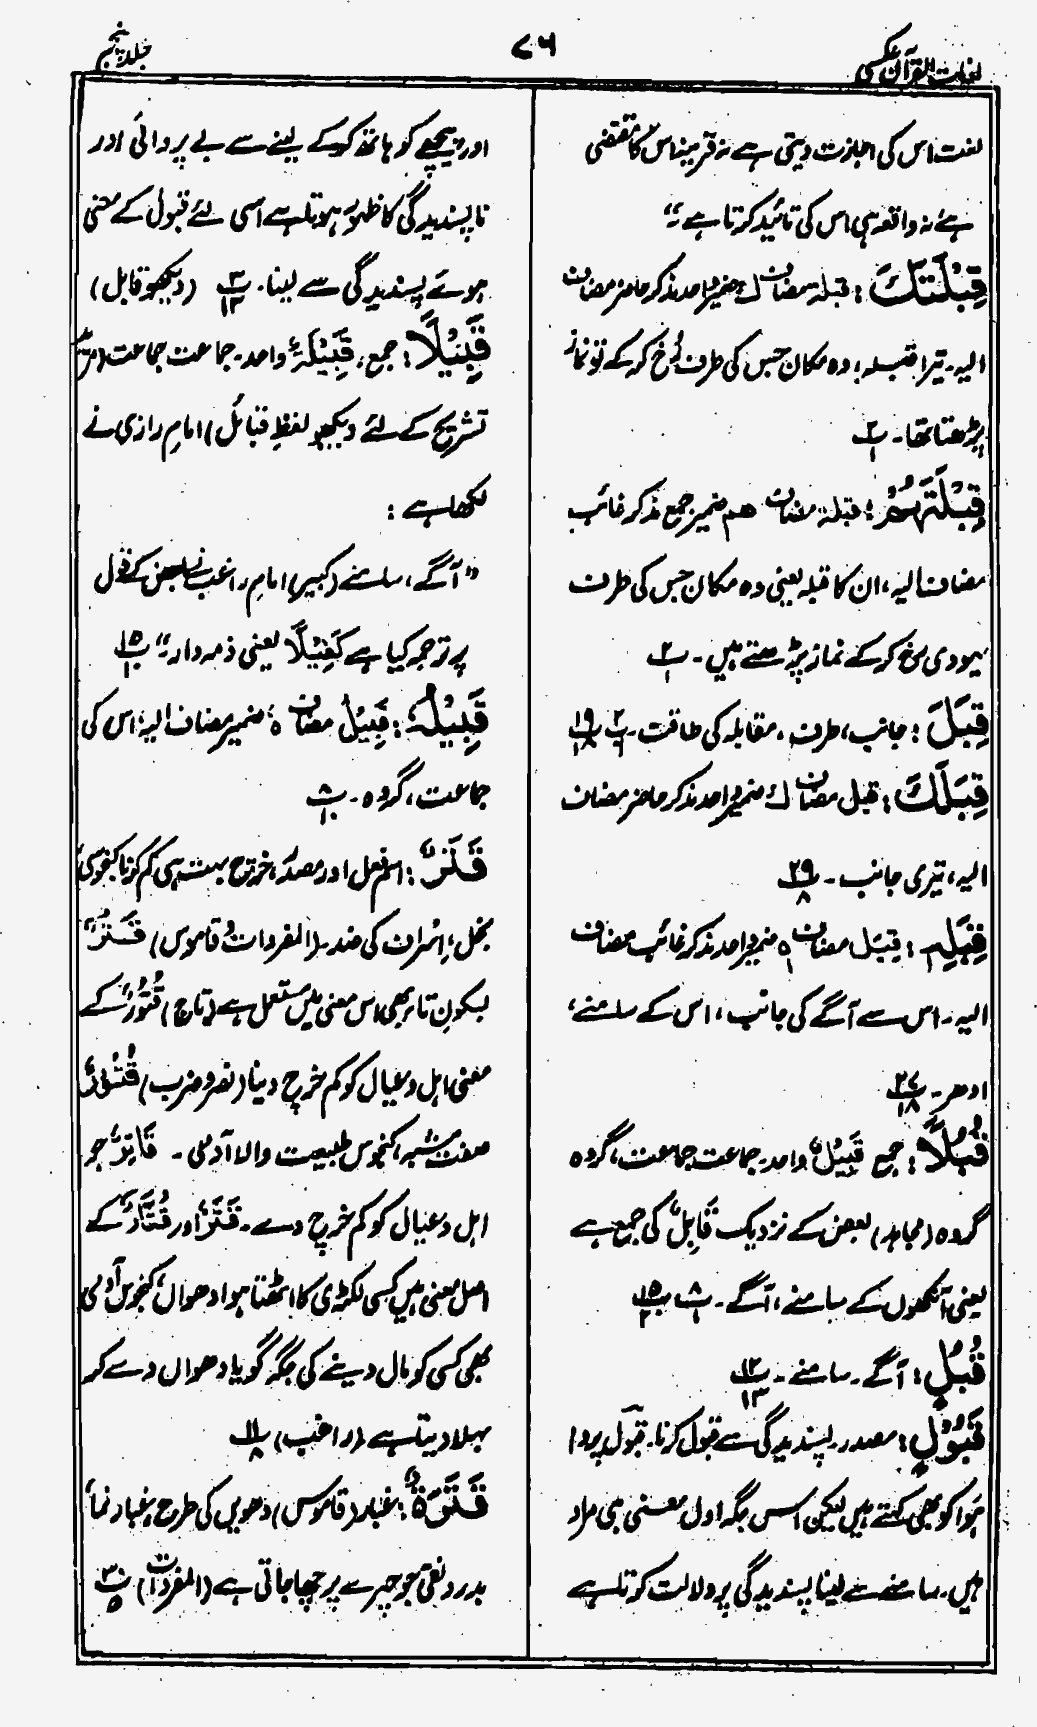 لغات القرآن عکسی
۷۶
جلد پنجم
لغت اس کی اجازت دیتی ہے نہ قرینہ اس کا مقتضی
ہے نہ واقعہ ہی اس کی تائید کرتا ہے"
قِبْلَتَكَ: قبلۃ مضاف ك ضمیر واحد مذکر حاضر مضاف
الیہ۔ تیرا قبلہ، وہ مکان جس کی طرف رُخ کر کے تو نماز
پڑھتا تھا۔ پ۲/۱
قِبْلَتَهُمْ: قبلۃ مضاف ھم ضمیر جمع مذکر غائب
مضاف الیہ، ان کا قبلہ یعنی وہ مکان جس کی طرف
یہودی رخ کر کے نماز پڑھتے ہیں۔ پ۲/۱
قِبَلَ: جانب، طرف، مقابلہ کی طاقت۔ پ۲/۶ پ۱۹/۱۸
قِبَلَكَ: قبل مضاف ك ضمیر واحد مذکر حاضر مضاف
الیہ، تیری جانب۔ پ۲۹/۸
قِبَلِهٖ: قِبَل مضاف ہٖ ضمیر واحد مذکر غائب مضاف
الیہ۔ اس سے آگے کی جانب، اس کے سامنے،
ادھر۔ پ۲۷/۱۸
قُبُلًا: جمع قَبِیْلٌ واحد۔ جماعت جماعت، گروہ
گروہ (مجاہد) بعض کے نزدیک قَابِلٌ کی جمع ہے
یعنی آنکھوں کے سامنے، آگے۔ پ۸/۱ پ۱۵/۲
قُبُلٍ: آگے۔ سامنے۔ پ۱۲/۱۳
قَبُوْلٍ: مصدر۔ پسندیدگی سے قبول کرنا۔ قبول پروا
ہوا کو بھی کہتے ہیں لیکن اس جگہ اول معنی ہی مراد
ہیں۔ سامنے سے لینا پسندیدگی پر دلالت کرتا ہے
اور پیچھے کو ہاتھ کر کے لینے سے بے پروائی اور
ناپسندیدگی کا ظہور ہوتا ہے اسی لئے قبول کے معنی
ہوئے پسندیدگی سے لینا۔ پ۳/۱۲ (دیکھو قابل)
قَبِیْلًا: جمع، قَبِیْلَۃٌ واحد۔ جماعت جماعت
تشریح کے لئے دیکھو لفظ قبائل) امام رازی نے
لکھا ہے:
"آگے، سامنے (کبیر) امام راغب نے بعض کے قول
پر ترجمہ کیا ہے کَفِیْلًا یعنی ذمہ دار۔" پ۱۵/۱۰
قَبِیْلُهٗ: قَبِیْلُ مضاف ہٗ ضمیر مضاف الیہ اس کی
جماعت، گروہ۔ پ۸/۱۰
قَتَرٌ: اسم فعل اور مصدر، خرچ بہت ہی کم کرنا کنجوسی
بخل، اِسراف کی ضد۔ (المفردات و قاموس) قَتْرٌ
بسکونِ تاء بھی اس معنی میں مستعمل ہے (تاج) قُتُوْرٌ کے
معنی اہل و عیال کو کم خرچ دینا (نصر و ضرب) قُتُوْرٌ
صفت مشبہ، کنجوس طبیعت والا آدمی۔ قَاتِرٌ جو
اہل و عیال کو کم خرچ دے۔ قَتَرٌ اور قُتَارٌ کے
اصل معنی ہیں کسی لکڑی کا اٹھتا ہوا دھواں، کنجوس آدمی
بھی کسی کو مال دینے کی جگہ گویا دھواں دے کر
بہلا دیتا ہے (راغب) پ۱۱/۸
قَتَرَةٌ: غبار (قاموس) دھویں کی طرح غبار نما
بدرونقی جو چہرے پر چھا جاتی ہے (المفردات) پ۳۰/۵